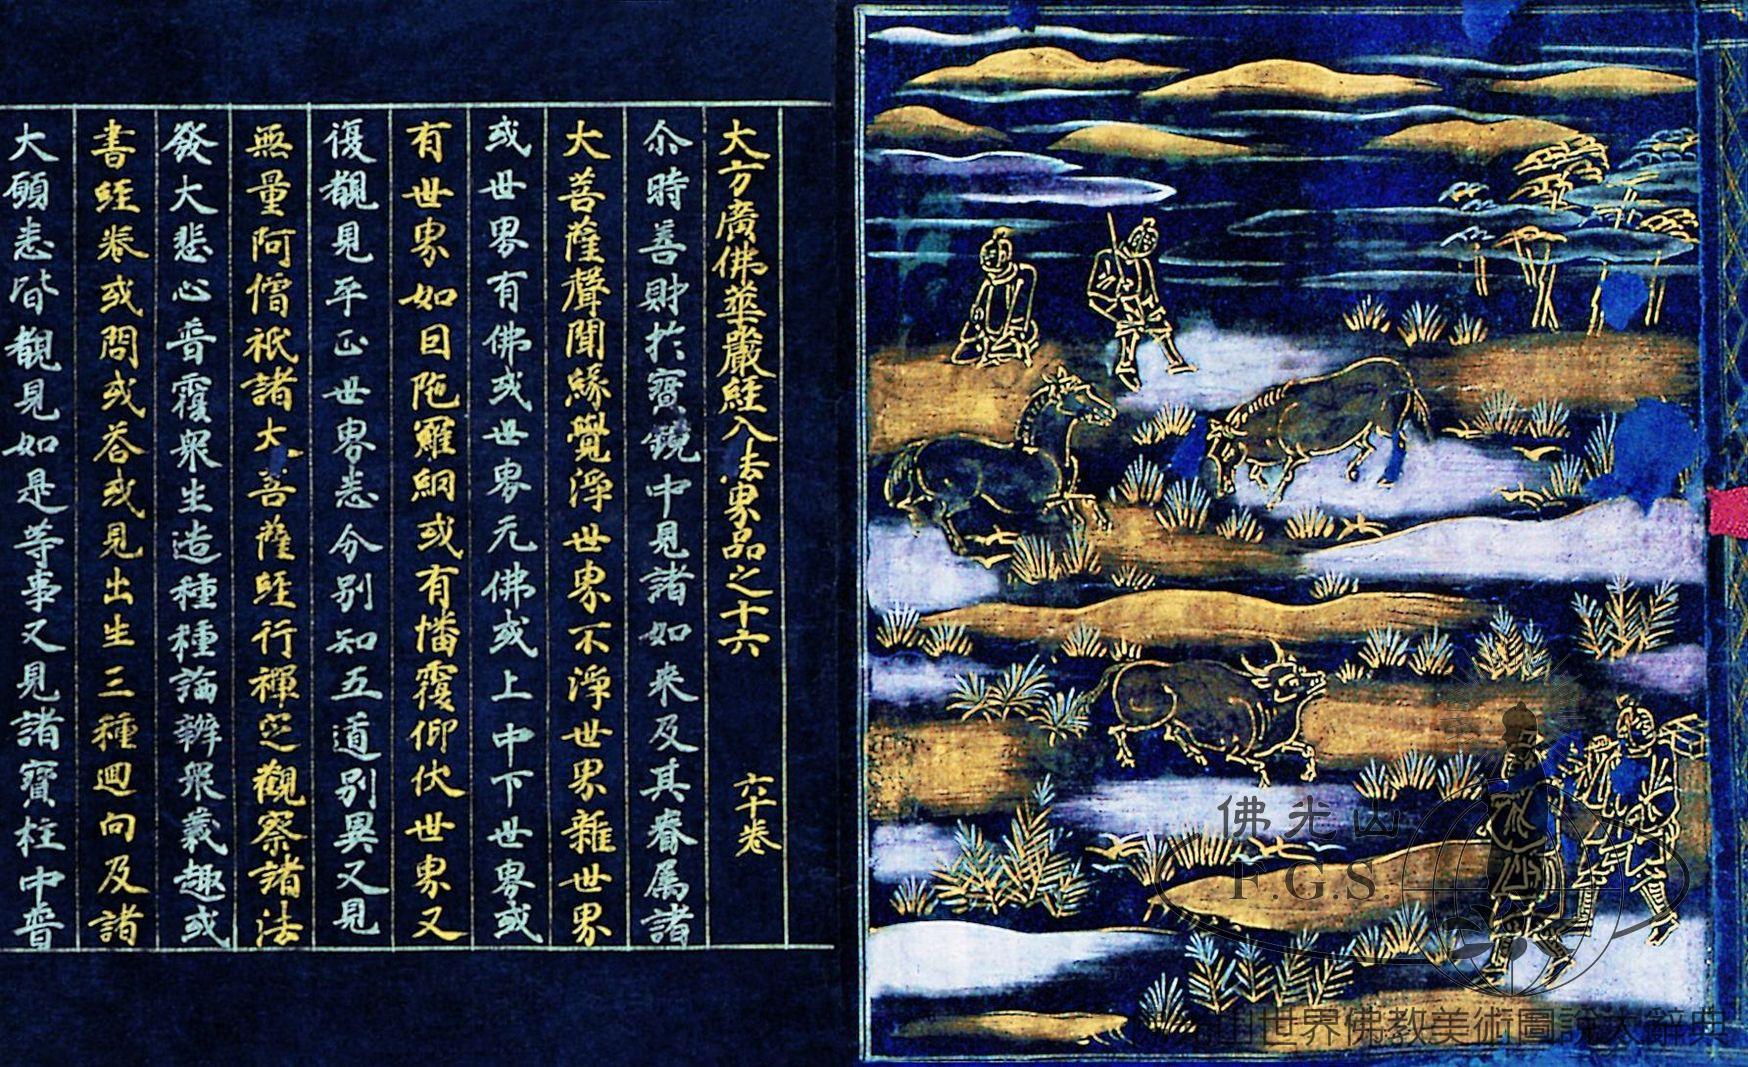 大方廣佛華嚴經入法界品之十六 六十卷
尒時善財於寶鏡中見諸如来及其眷属諸
大菩薩聲聞緣覺淨世界不淨世界雜世界
或世界有佛或世界无佛或上中下世界或
有世界如因陁羅網或有幡覆仰伏世界又
復觀見平正世界悉分別知五道別異又見
無量阿僧祇諸大菩薩經行禪定觀察諸法
發大悲心普覆衆生造種種論辯衆義趣或
書經卷或問或荅或見出生三種迴向及諸
大願悉皆觀見如是等事又見諸寶柱中普
佛光山
F.G.S
佛光山世界佛教美術圖說大辭典